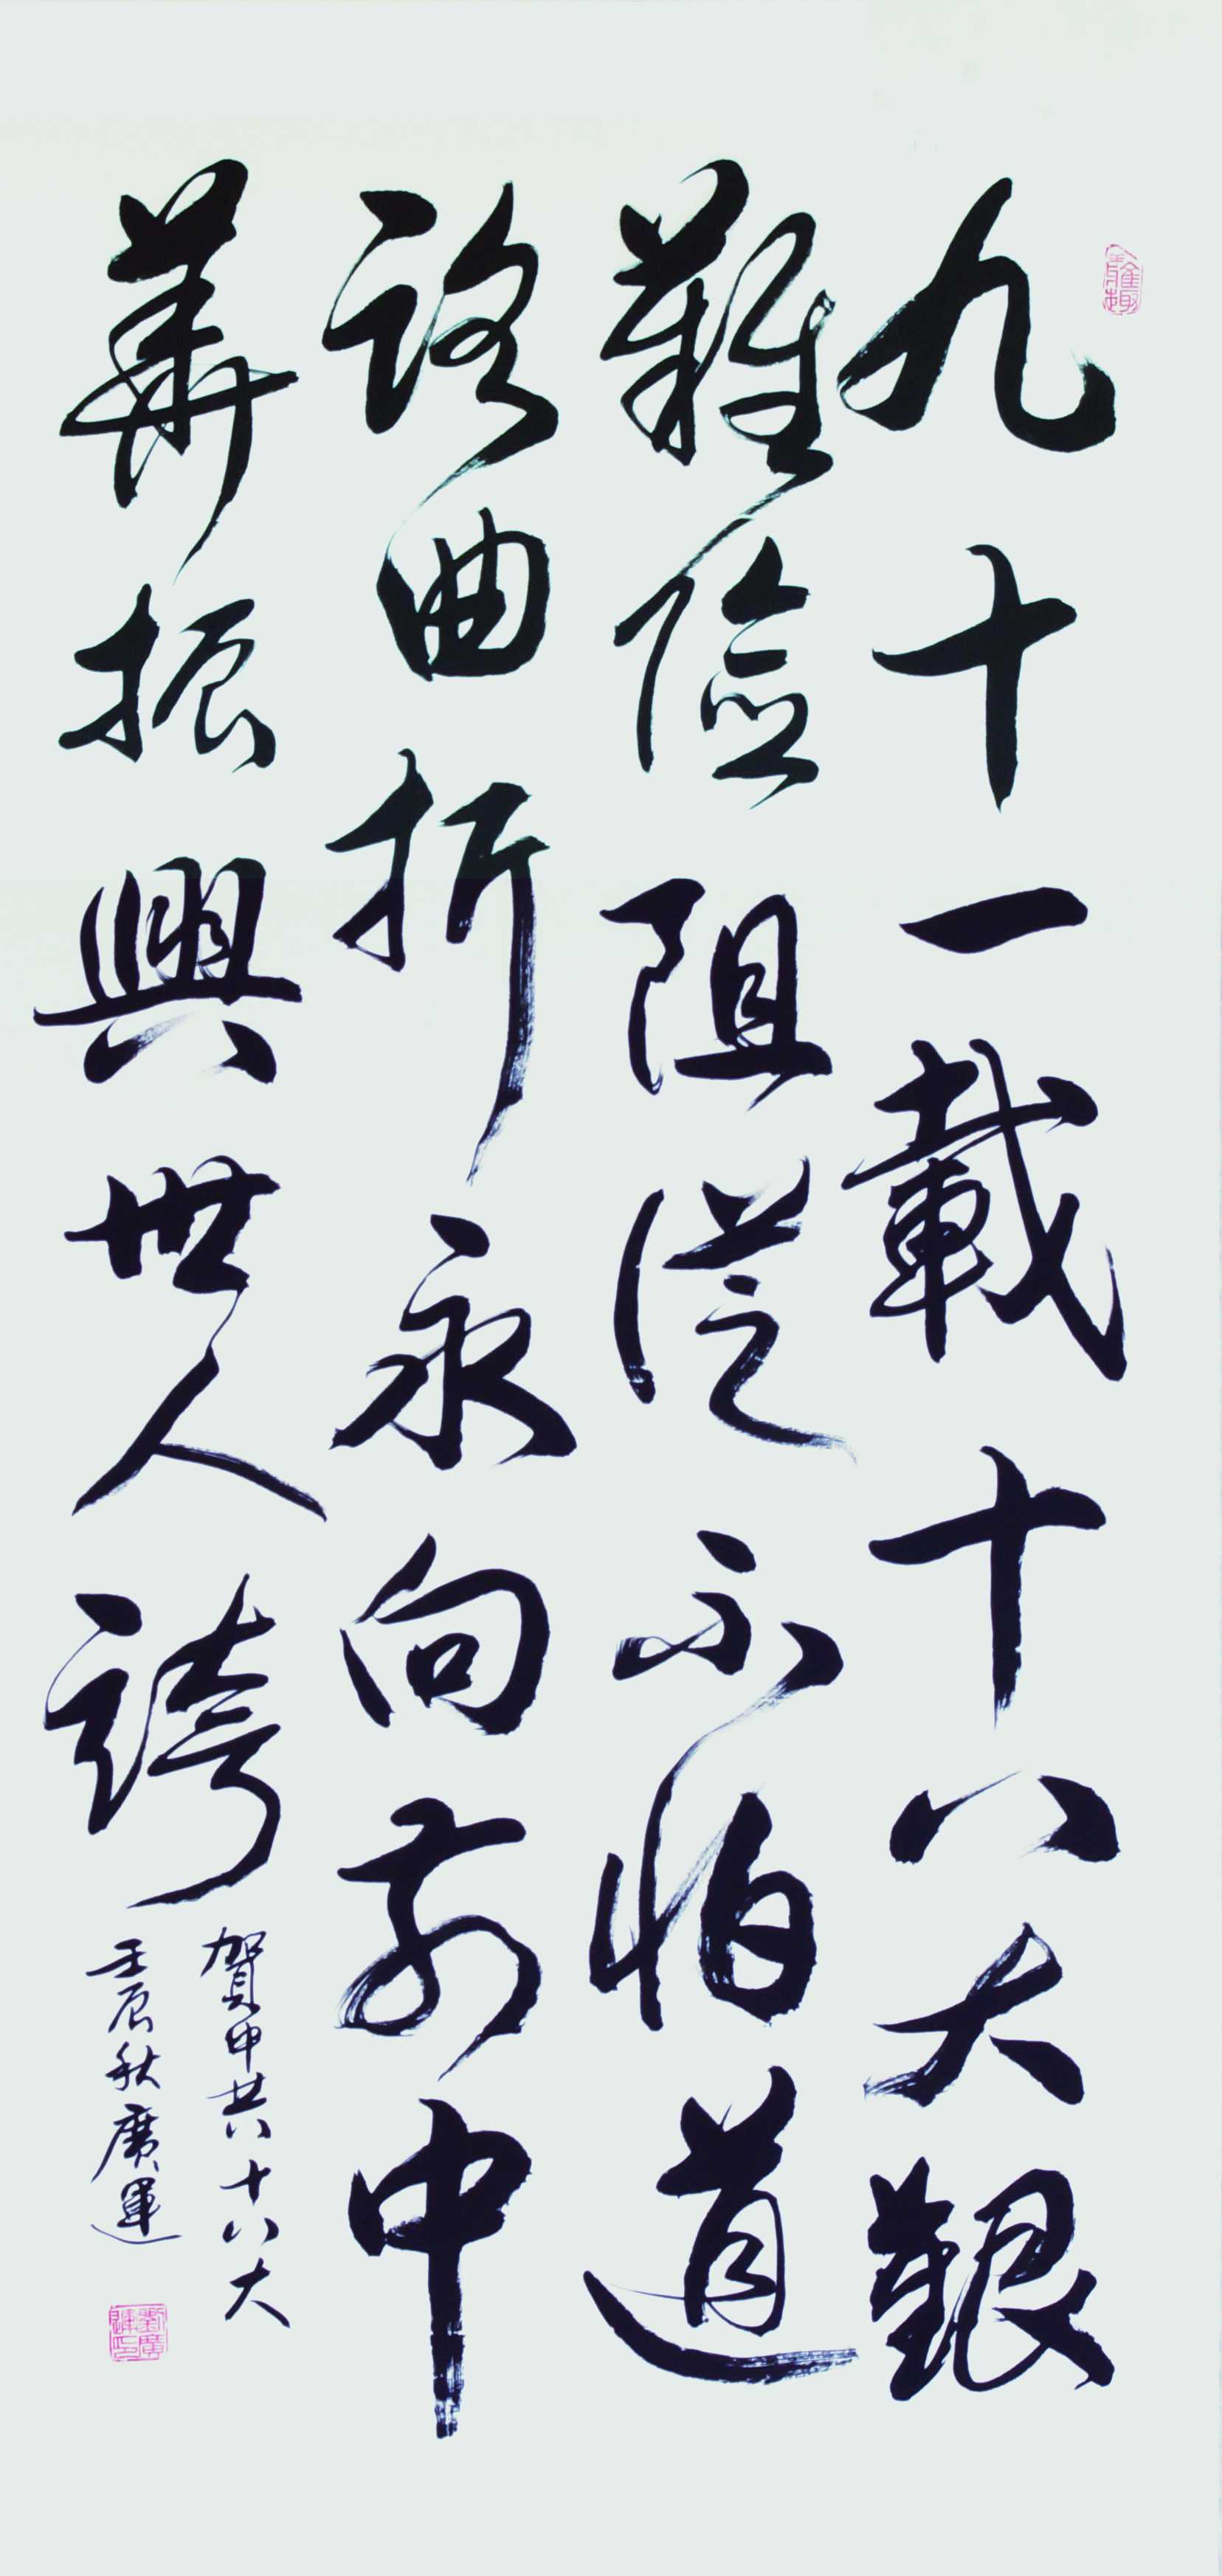 九十一載十八大艱
難險阻從不怕道
路曲折永向前中
華振興世人誇
賀中共十八大
壬辰秋廣運
劉廣運印